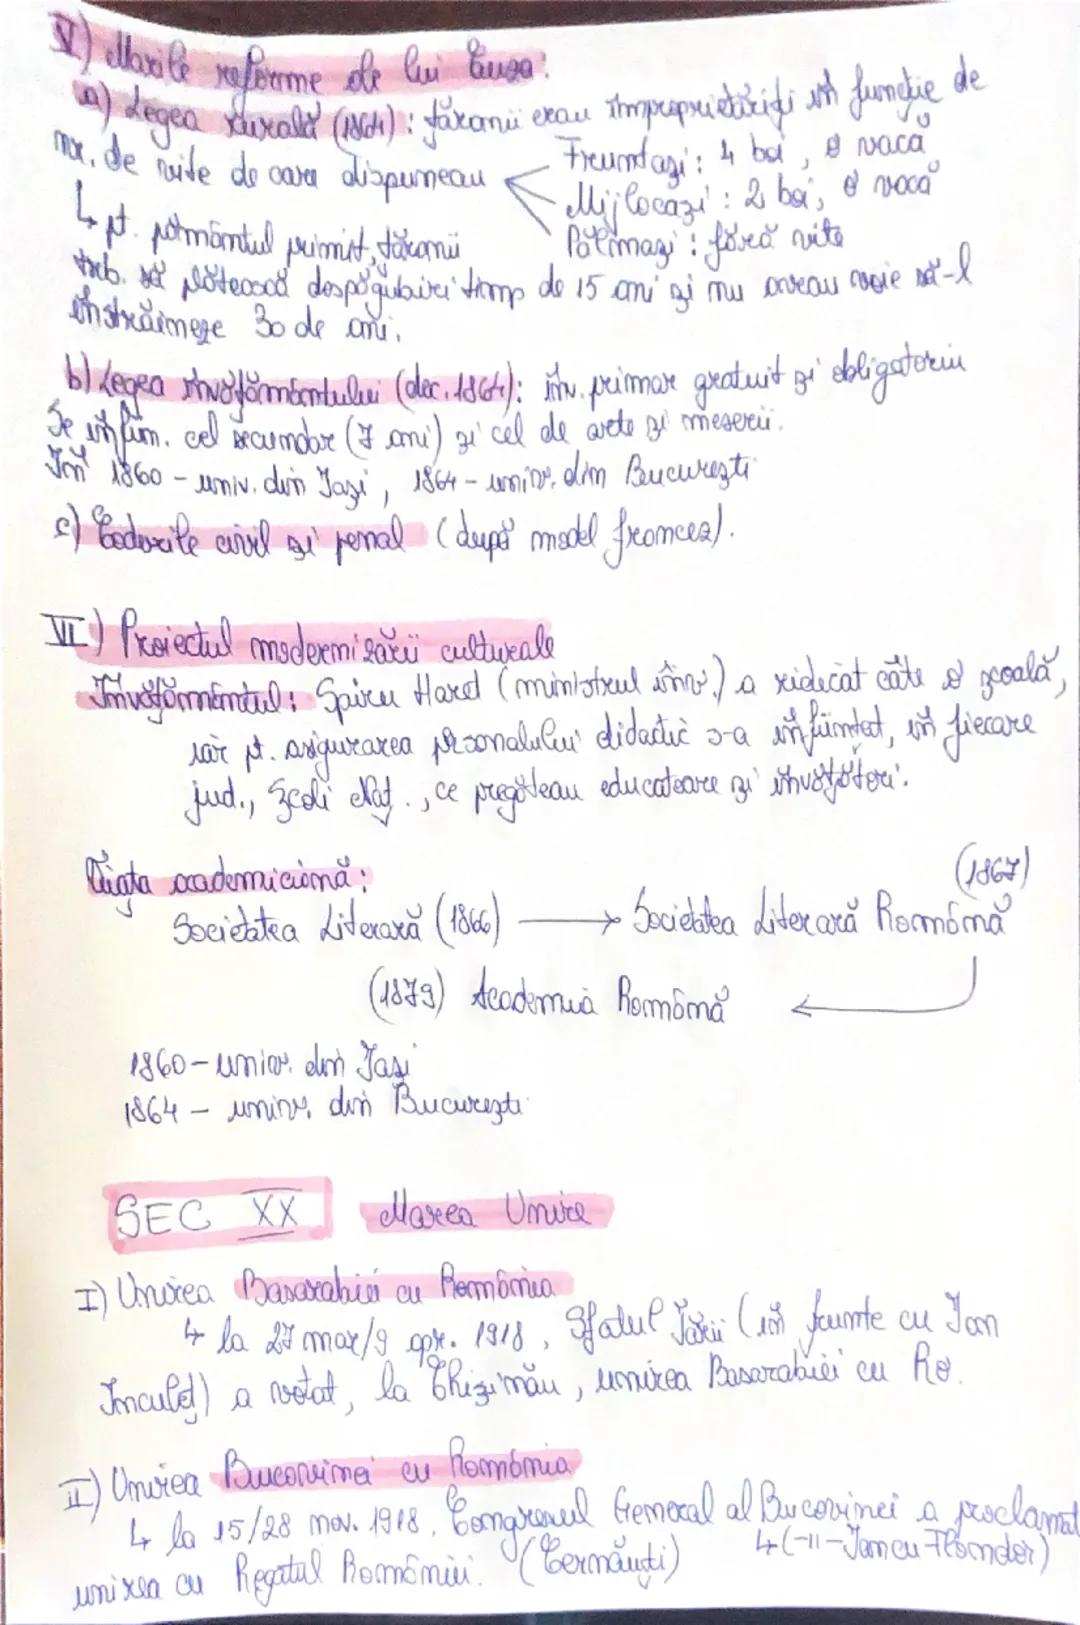 V) Marile reforme ale lui Cuza:
a) Legea rurală (1864): țăranii erau împroprietăriți în funcție de
nr. de vite de care dispuneau
Fruntași: 4 boi, o vacă
Mijlocași: 2 boi, o vacă
Pălmași: fără vite
↳ pt. pământul primit, țăranii
treb. să plătească despăgubiri timp de 15 ani și nu aveau voie să-l
înstrăineze 30 de ani.
b) Legea învățământului (dec. 1864): înv. primar gratuit și obligatoriu
Se înființ. cel secundar (7 ani) și cel de arte și meserii.
În 1860 - univ. din Iași, 1864 - univ. din București
c) Codurile civil și penal (după model francez).
VI) Proiectul modernizării culturale
Învățământul: Spiru Haret (ministrul înv.) a ridicat câte o școală,
iar pt. asigurarea personalului didactic s-a înființat, în fiecare
jud., Școli Naț., ce pregăteau educatoare și învățători.
Viața academiciană:
(1867)
Societatea Literară (1866) → Societatea Literară Română
(1879) Academia Română ←
1860 - univ. din Iași
1864 - univ. din București
SEC XX Marea Unire
I) Unirea Basarabiei cu România
↳ la 27 mar/9 apr. 1918, Sfatul Țării (în frunte cu Ion
Inculeț) a votat, la Chișinău, unirea Basarabiei cu Ro.
II) Unirea Bucovinei cu România
↳ la 15/28 nov. 1918, Congresul General al Bucovinei a proclamat
↳ (-11- Iancu Flondor)
unirea cu Regatul României. (Cernăuți)